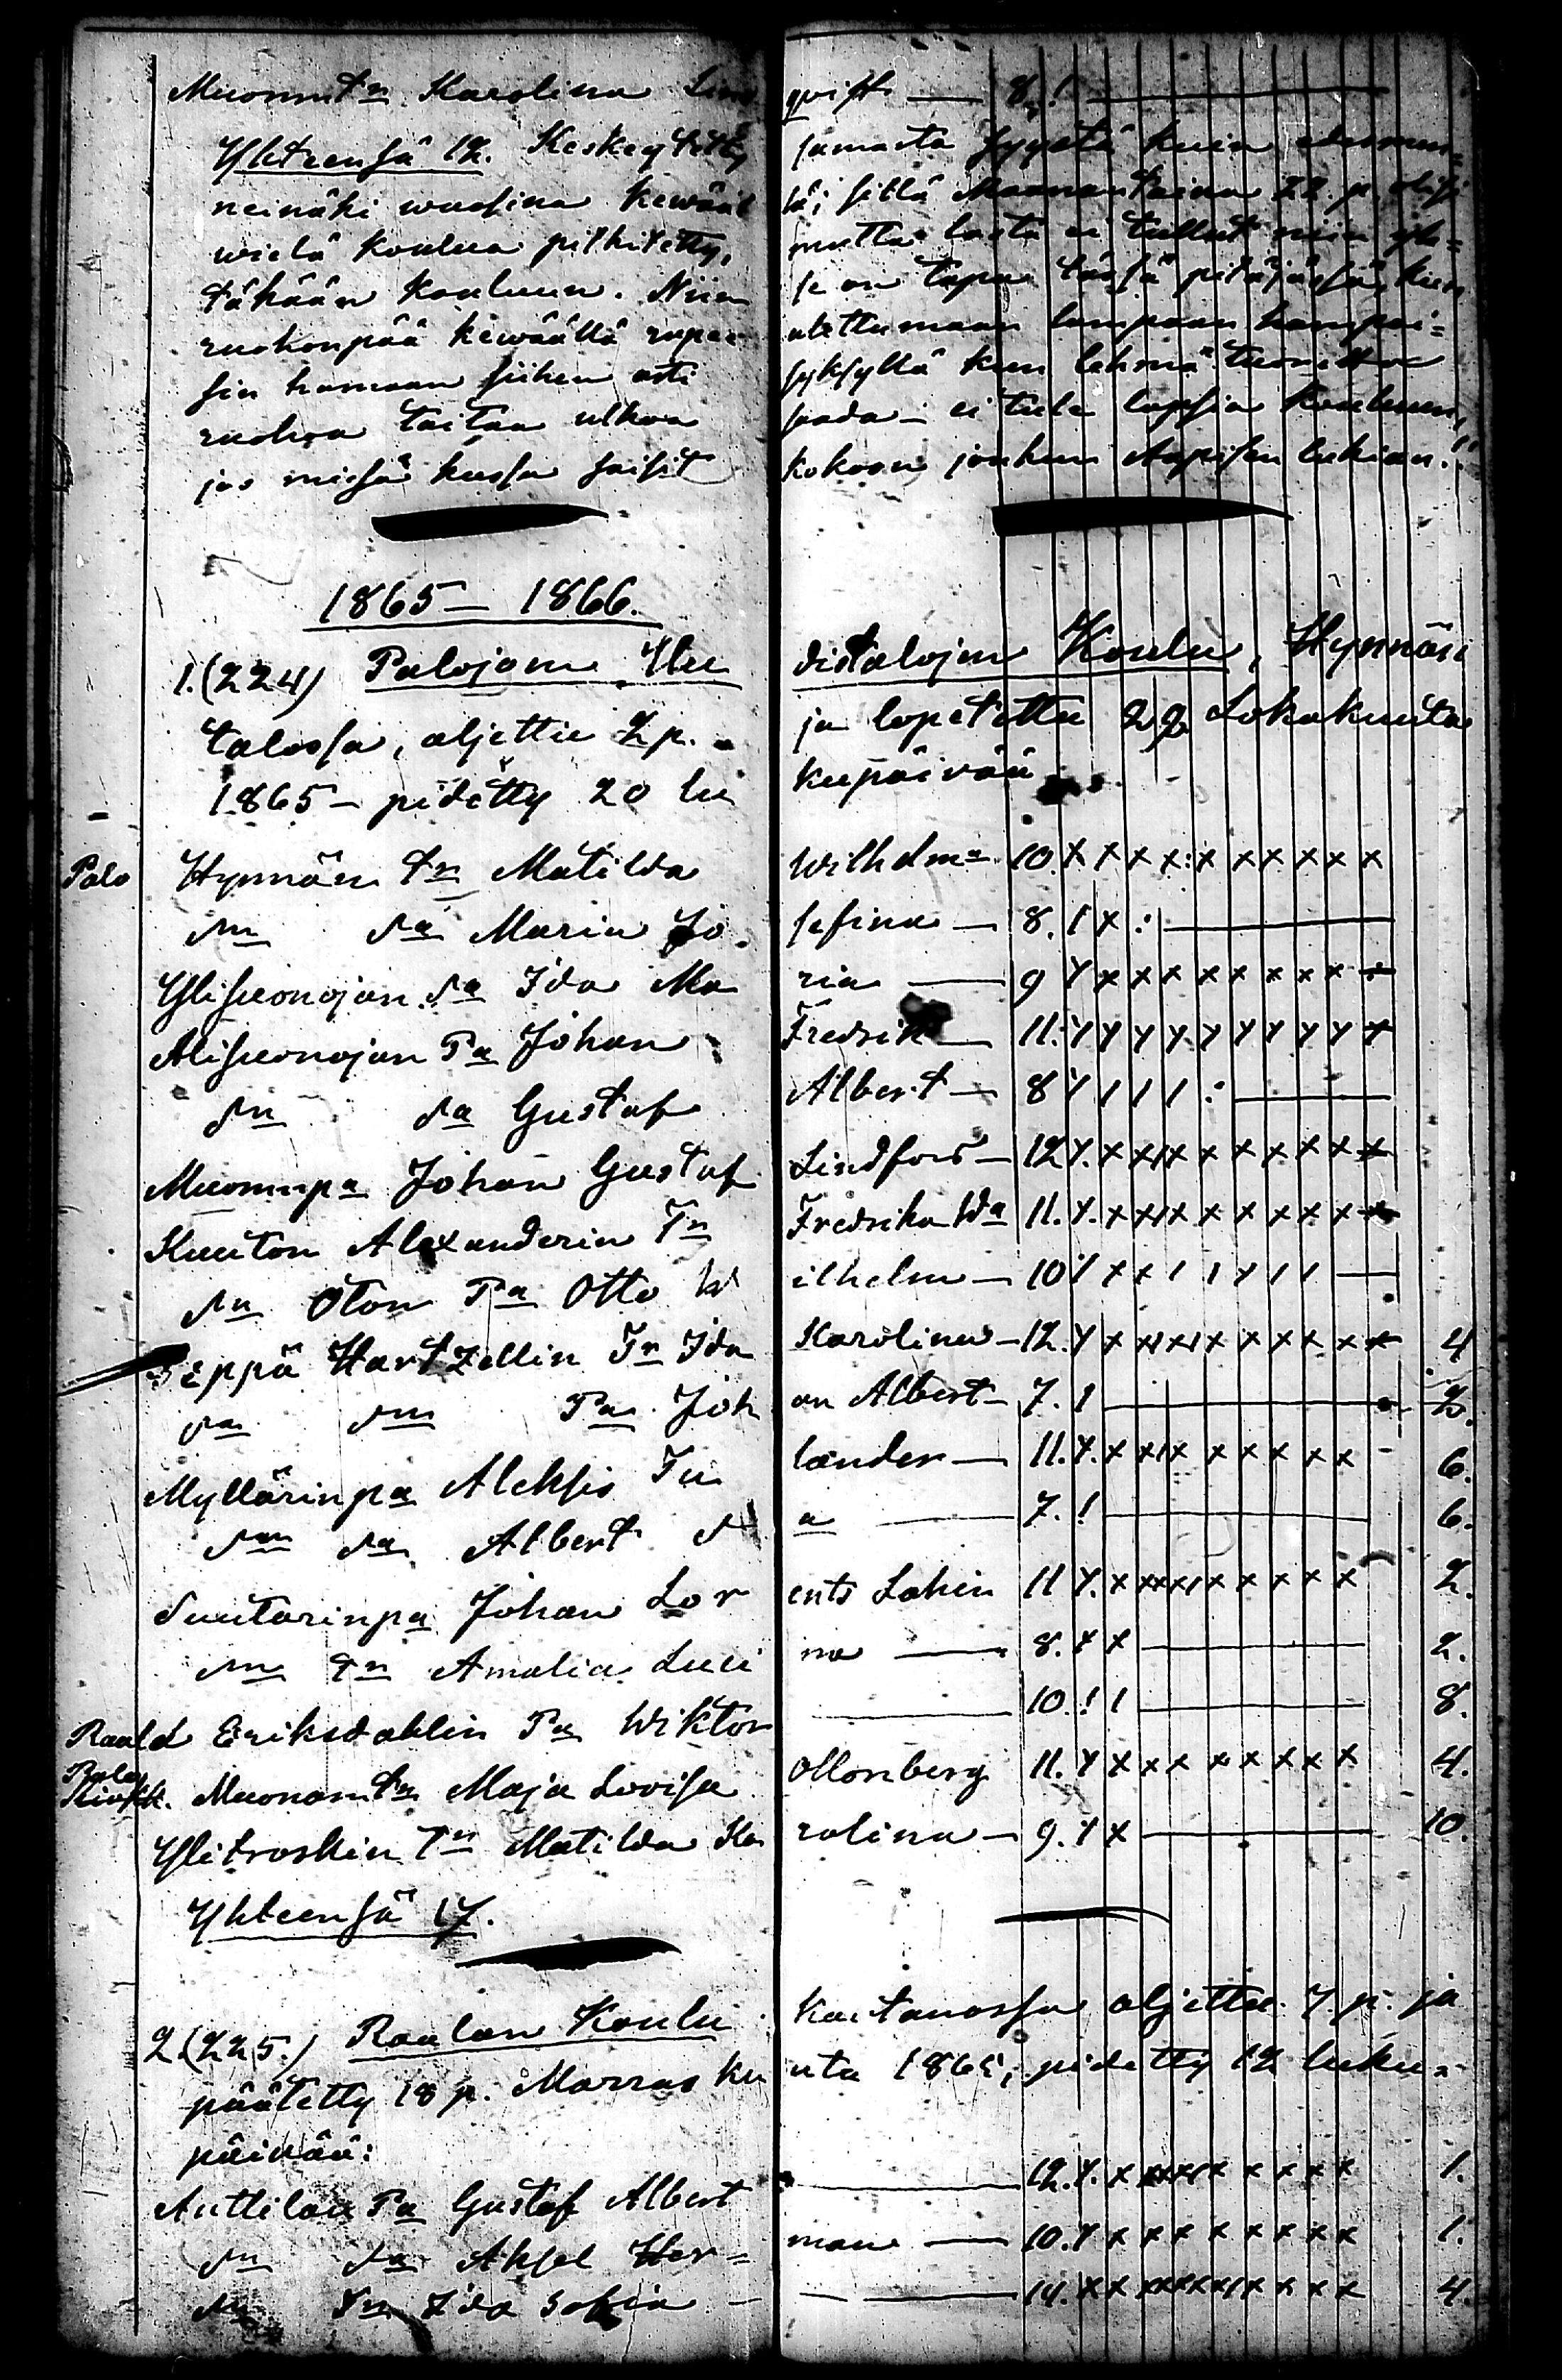 Muonintn Karolina Lind qvist — 8. !
Yhteensä 12. Keskeytetty samasta syystä kuin
neinäki wuosina kewääl lä; sillä Maanantaina 22. p. olisi
wielä koulua pitkitetty, mutta lasta ei tullut niin
tähään kouluun. Niin se on tapa tässä pitäjässä, kun
ruohonpää kewäällä rupee lampaan
sin hamaan siihen asti syksyllä kun lehmä
ruohoa taitaa ulkoa saada — ei tule lapsia kouluun,
jos missä kussa saisit kokoon jonkun Aapisen lukian."
1865 — 1866.
1.(224) Palojoen Uu distalojen Koulu, Hynnän
talossa, aljettu 2 p. ja lopetettu 28 Lokakuuta
1865 — pidetty 20 lu kupäivää
Palo Hynnän tr Matilda Wilhelma 10. x x x x : x x x x x x
dn da Maria Jo sefina — 8. 1 x :
Ylisuonojan da Ida Ma ria — 9 Y x x x x x x x x x
Alisuonojan Pa Johan Fredrik — 11. Y Y Y Y Y Y Y Y Y x
dn da Gustaf Albert — 8 Y 1 1 1 :
Muoninpa Johan Gustaf Lindfors — 12 Y. x x x x x x x x x x
Kuuton Alexanderin Tr Fredrika Wa 11. Y. x x x x x x x x x x
dn Oton Pa Otto W ilhelm — 10 Y x x 1 1 Y 1 1 —
Seppä Hartzellin Tr Ida Karolina — 12. Y x x x x x x x x x 4
da dn Pa Joh an Albert — 7. 1 — 2.
Myllärinpa Aleksis Fu lander — 11. Y. x x x x x x x x x 6.
dn da Albert d a — 7. ! — 6.
Suutarinpa Johan Lor ents Lahin 11 Y. x x x x x x x x x x 2.
dn tr Amalia Lusi na — 8. Y x — 2.
Raald Eriksdahlin Pa Wiktor — 10. ! 1 — 8.
Palo Muonion tr Maja Lovisa Ollonberg 11. Y x x x x x x x x 4.
Ylitroskin Tr Matilda Ka rolina — 9. Y x — 10.
Yhteensä 17.
2(225.) Raalan Koulu Kartanossa aljettu 7 p. ja
päätetty 18 p. Marrasku uta 1865, pidetty 12 luku-
päivää:
Anttilan Pa Gustaf Albert — 12. Y. x x x x x x x x x x 1.
dn da Aksel Her= man — 10. Y x x x x x x x x 1.
dn Tr Ida Sofia — 14. x x x x x x x x x x 4.